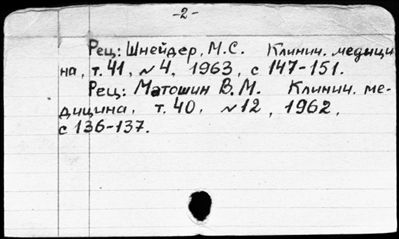 -2-
Рец: Шнейдер, М.С. Клинич. медици
на, т.41, №4, 1963, с 147-151.
Рец: Матошин В.М. Клинич. ме-
дицина, т.40, №12, 1962,
с 136-137.